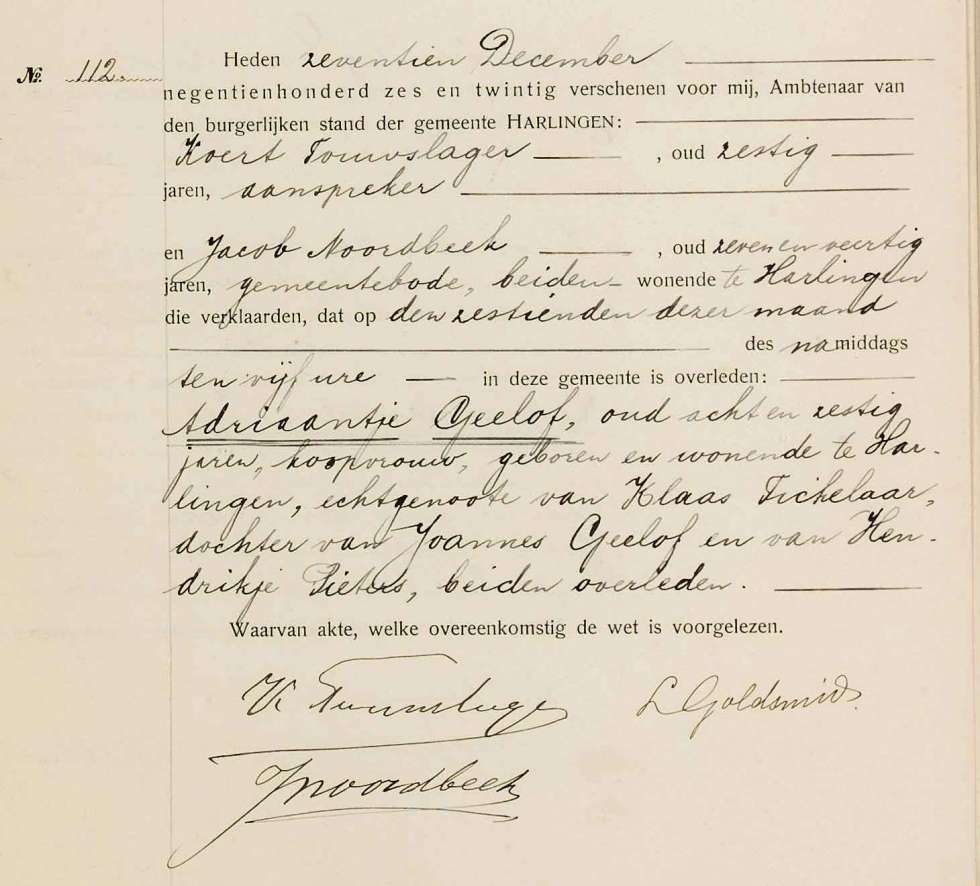 No. 112.
Heden zeventien December
negentienhonderd zes en twintig verschenen voor mij, Ambtenaar van
den burgerlijken stand der gemeente HARLINGEN:
Koert Touwslager , oud zestig
jaren, aanspreker
en Jacob Noordbeek , oud zeven en veertig
jaren, gemeentebode, beiden wonende te Harlingen
die verklaarden, dat op den zestienden dezer maand
des namiddags
ten vijf ure in deze gemeente is overleden:
Adriaantje Geelof, oud acht en zestig
jaren, koopvrouw, geboren en wonende te Har-
lingen, echtgenoote van Klaas Tichelaar,
dochter van Joannes Geelof en van Hen-
drikje Pieters, beiden overleden.
Waarvan akte, welke overeenkomstig de wet is voorgelezen.
K Touwslager LGoldsmid.
JNoordbeek